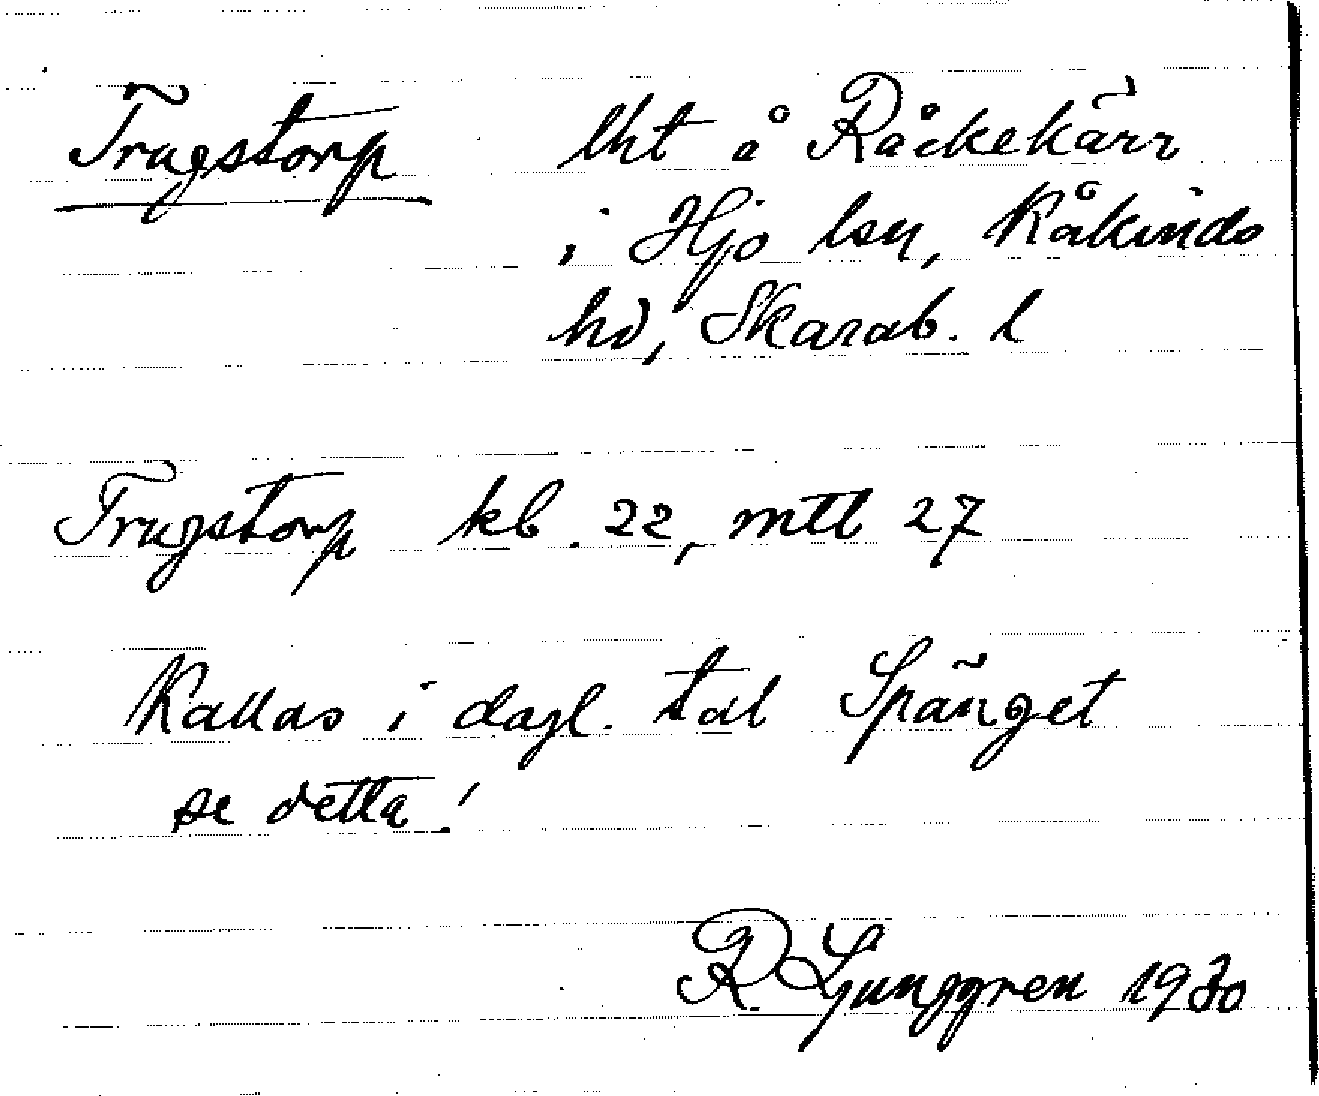 Trugstorp lht å Råckekärr
i Hjo lsn, Kåkinds
hd, Skarab. l
Trugstorp kb. 22, mtl 27
Kallas i dagl. tal Spänget
se detta!
R. Ljunggren 1930